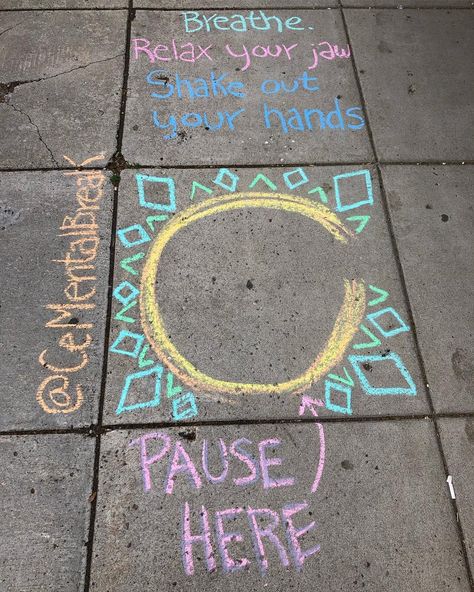 Breathe.
Relax your jaw
Shake out
your hands
@CeMentalBreak
PAUSE
HERE